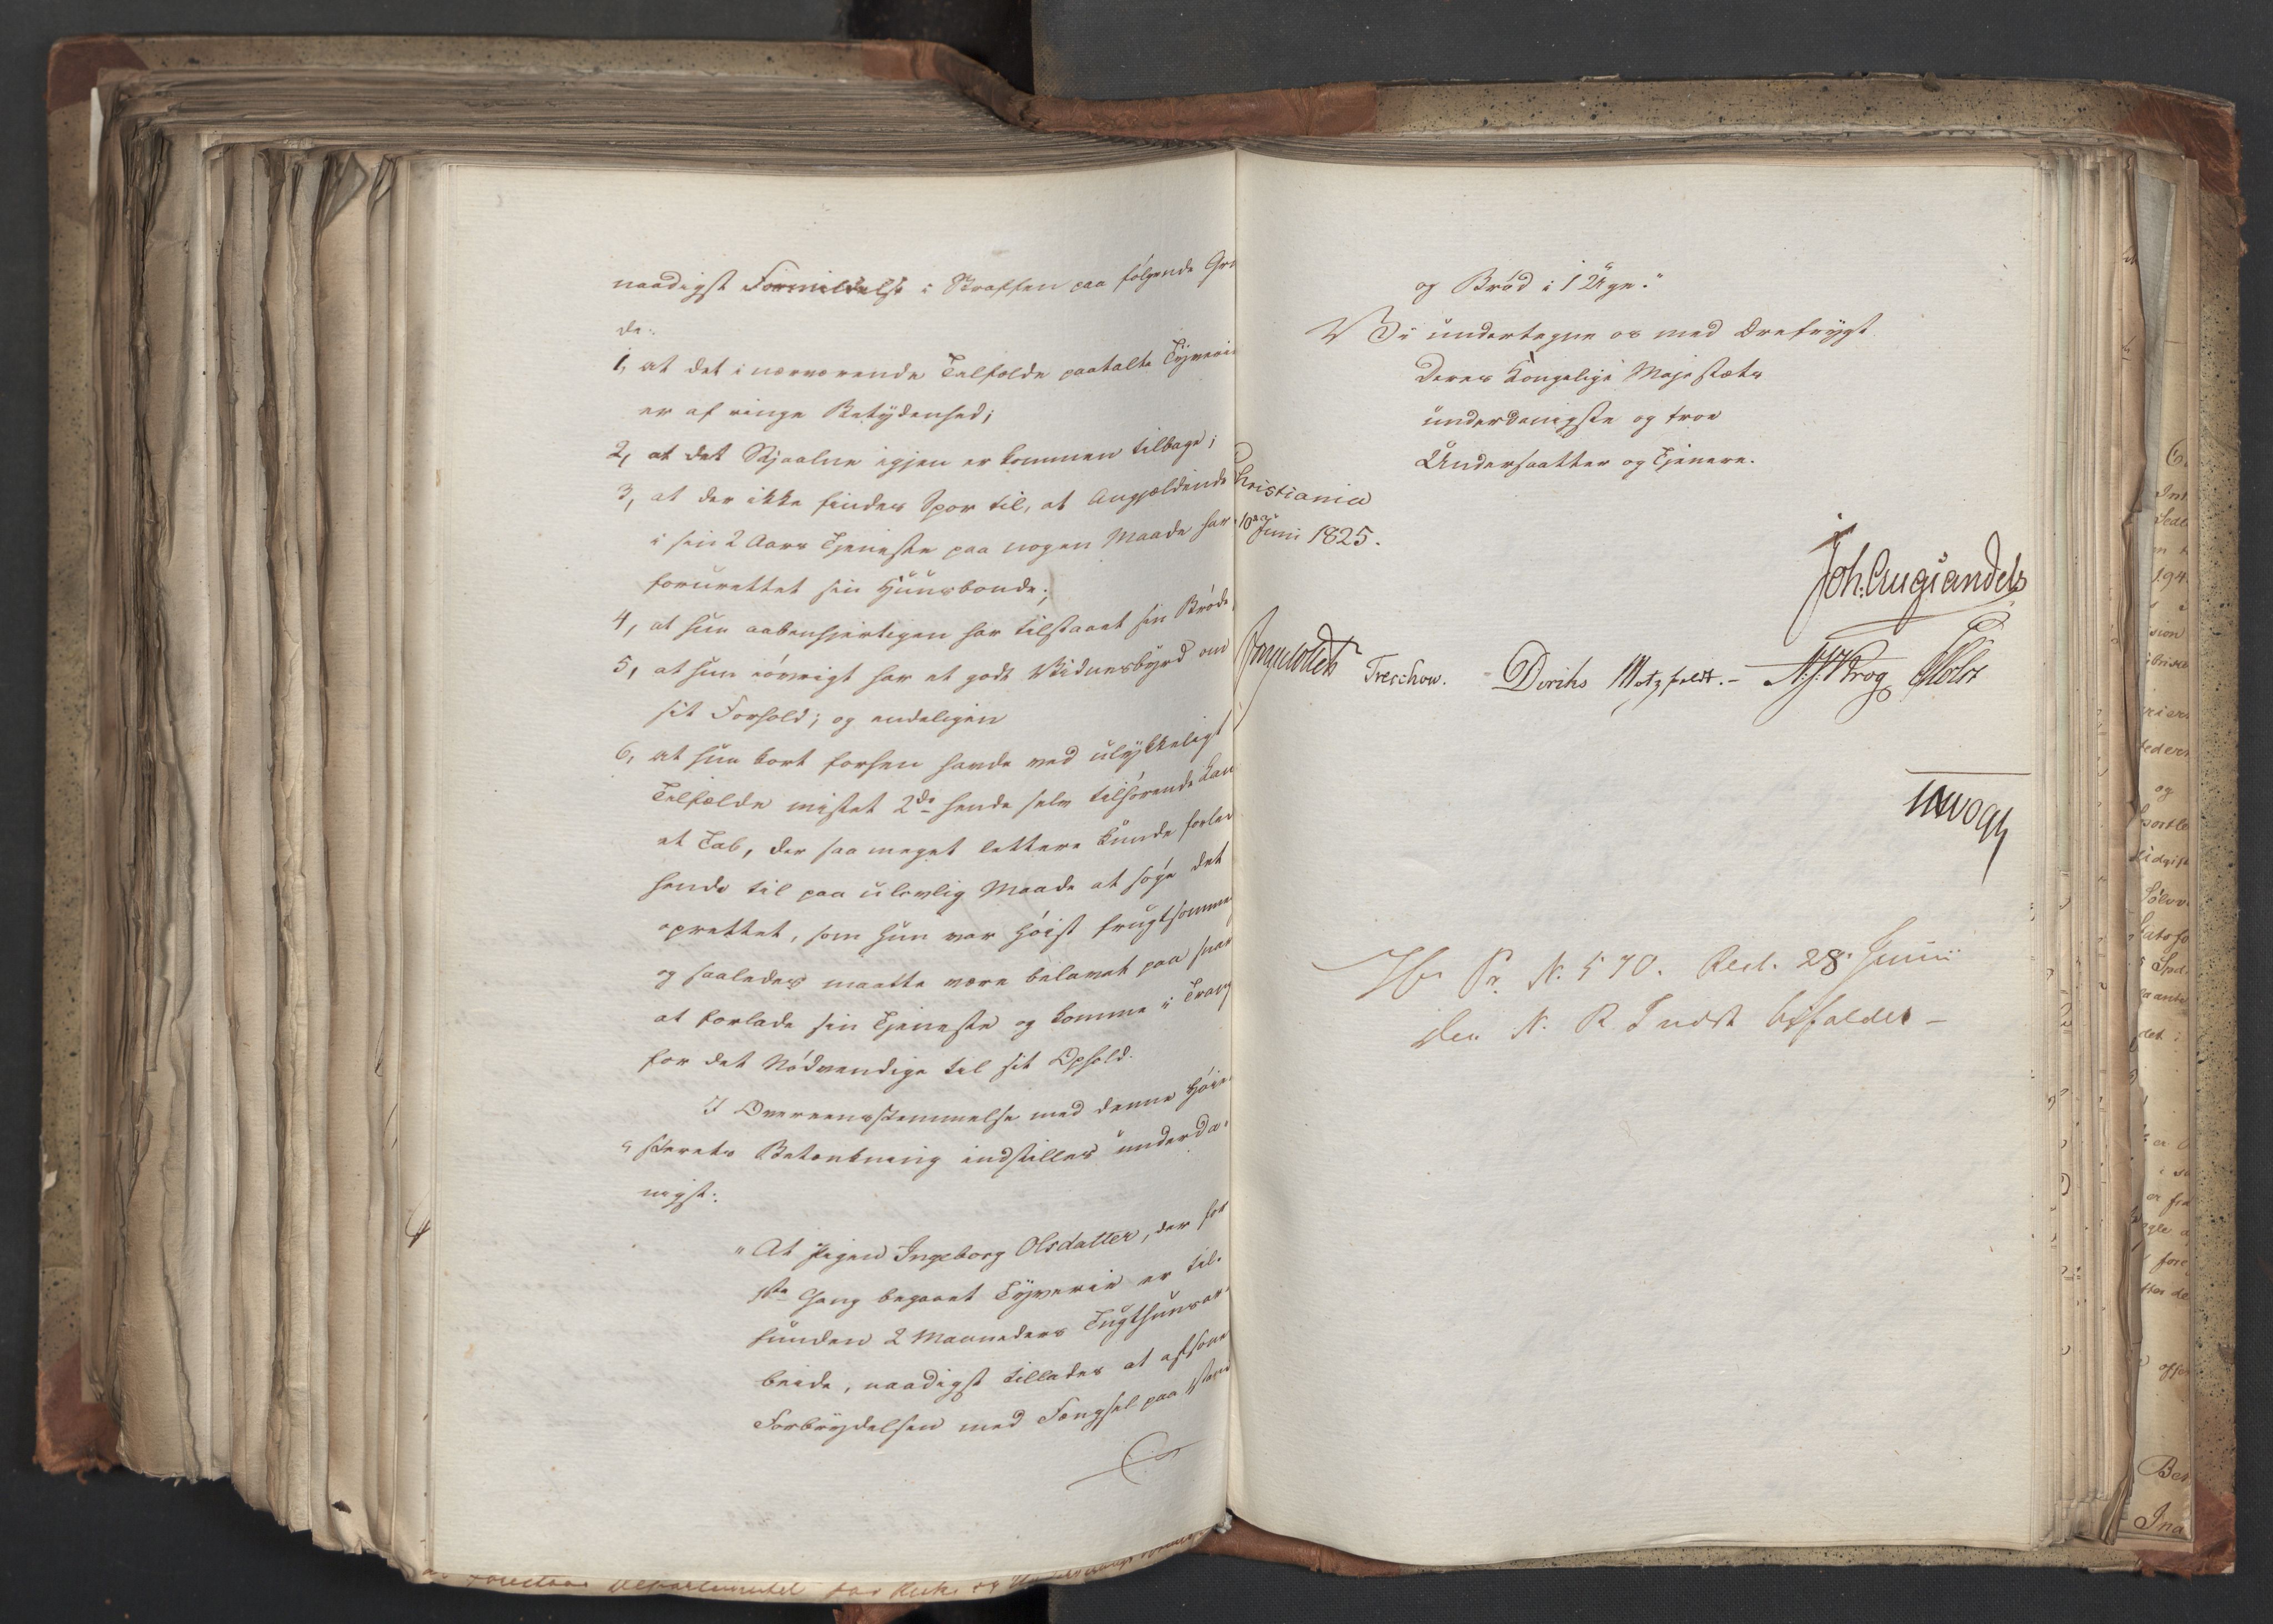 naadigst Formildelse i Straffen paa følgende Grun
de:
1, at det i nærværende Tilfælde paatalte Tyverie
er af ringe Betydenhed;
2, at det Stjaalne igjen er kommen tilbage;
3, at der ikke findes Spor til, at Angjældende
i sin 2 Aars Tjeneste paa nogen Maade har
forurettet sin Huusbonde;
4, at hun aabenhjertigen har tilstaaet sin Brøde,
5, at hun iøvrigt har et godt Vidnesbyrd om
sit Forhold; og endeligen
6, at hun kort forhen havde ved ulykkeligt
Tilfælde mistet 2de hende selv tilhørende
et Tab, der saa meget lettere kunde forlede
hende til paa ulovlig Maade at søge det
oprettet, som hun var høist frugtsommelig
og saaledes maatte være belavet paa snart
at forlade sin Tjeneste og komme i Trang
for det Nødvendige til sit Ophold.
I Overeensstemmelse med denne Høie-
sterets Betænkning indstilles underda-
nigst:
"At Pigen Ingeborg Olsdatter, der for
1ste Gang begaaet Tyverie er til-
funden 2 Maaneders Tugthuusar-
beide, naadigst tillades at afsone
Forbrydelsen med Fængsel paa Vand
og Brød i 12 Dage."
Vi undertegne os med Ærefrygt
Deres Kongelige Majestæts
underdanigste og troe
Undersaatter og Tjenere.
Christiania
10de Juni 1825.
Joh. Aug. Sandels
Treschow. Diriks Motzfeldt. - Krog Holst
Vogt
Pr N. 570. Res. 28 Junii
Den N. R. Indst bifaldes -